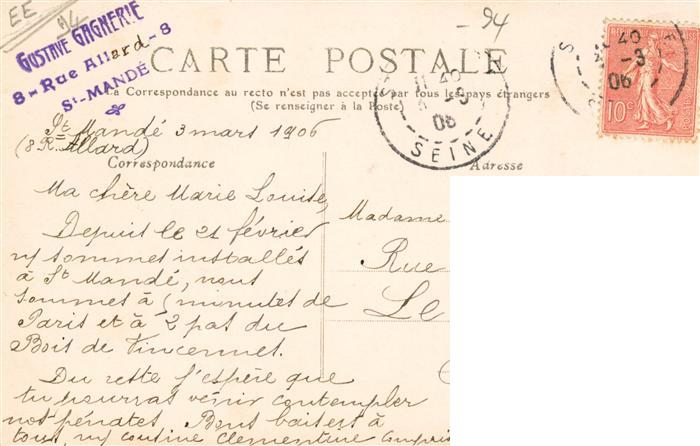 EE
94
-94
GUSTAVE GAGNERIE
8 - Rue Allard - 8
St-MANDÉ
CARTE POSTALE
La Correspondance au recto n'est pas acceptée par tous les pays étrangers
(Se renseigner à la Poste)
40
-3
06
SEINE
40
-3
06
10c
St Mandé 3 mars 1906
(8 R. Allard)
Correspondance
Adresse
Ma chère Marie Louise,
Depuis le 21 février
ns sommes installés
à St Mandé, nous
sommes à 5 minutes de
Paris et à 2 pas du
Bois de Vincennes.
Du reste j'espère que
tu pourras venir contempler
nos pénates. Bons baisers à
tous, ns cousine Clementine compris
Madame
Rue
Le